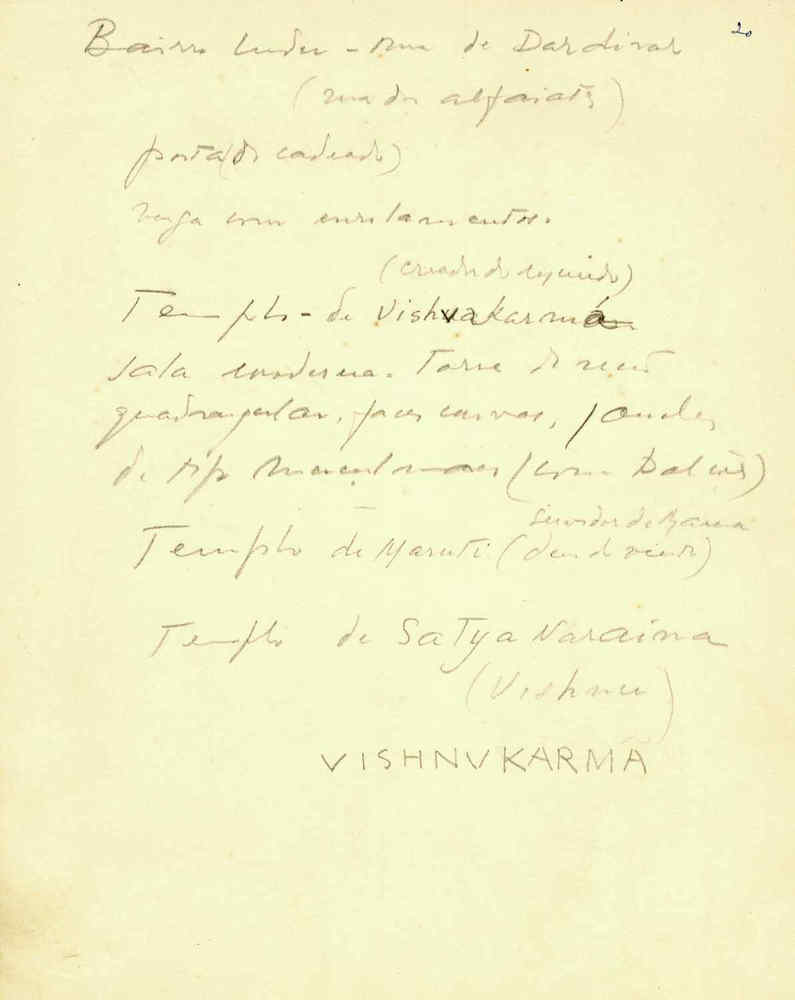 20
Bairro hindu - rua de Dardivar
(rua dos alfaiates)
porta (do cadeado)
verga com enrolamentos.
(creador do mundo)
Templo - de Vishvakarmá
sala moderna. Torre de secção
quadrangular, faces curvas, janelas
de tipo muculmano (com Balcões)
servidor de Rama
Templo de Maruti (deus do vento)
Templo de Satya Naraina
(Vishnu)
VISHNVKARMÃ